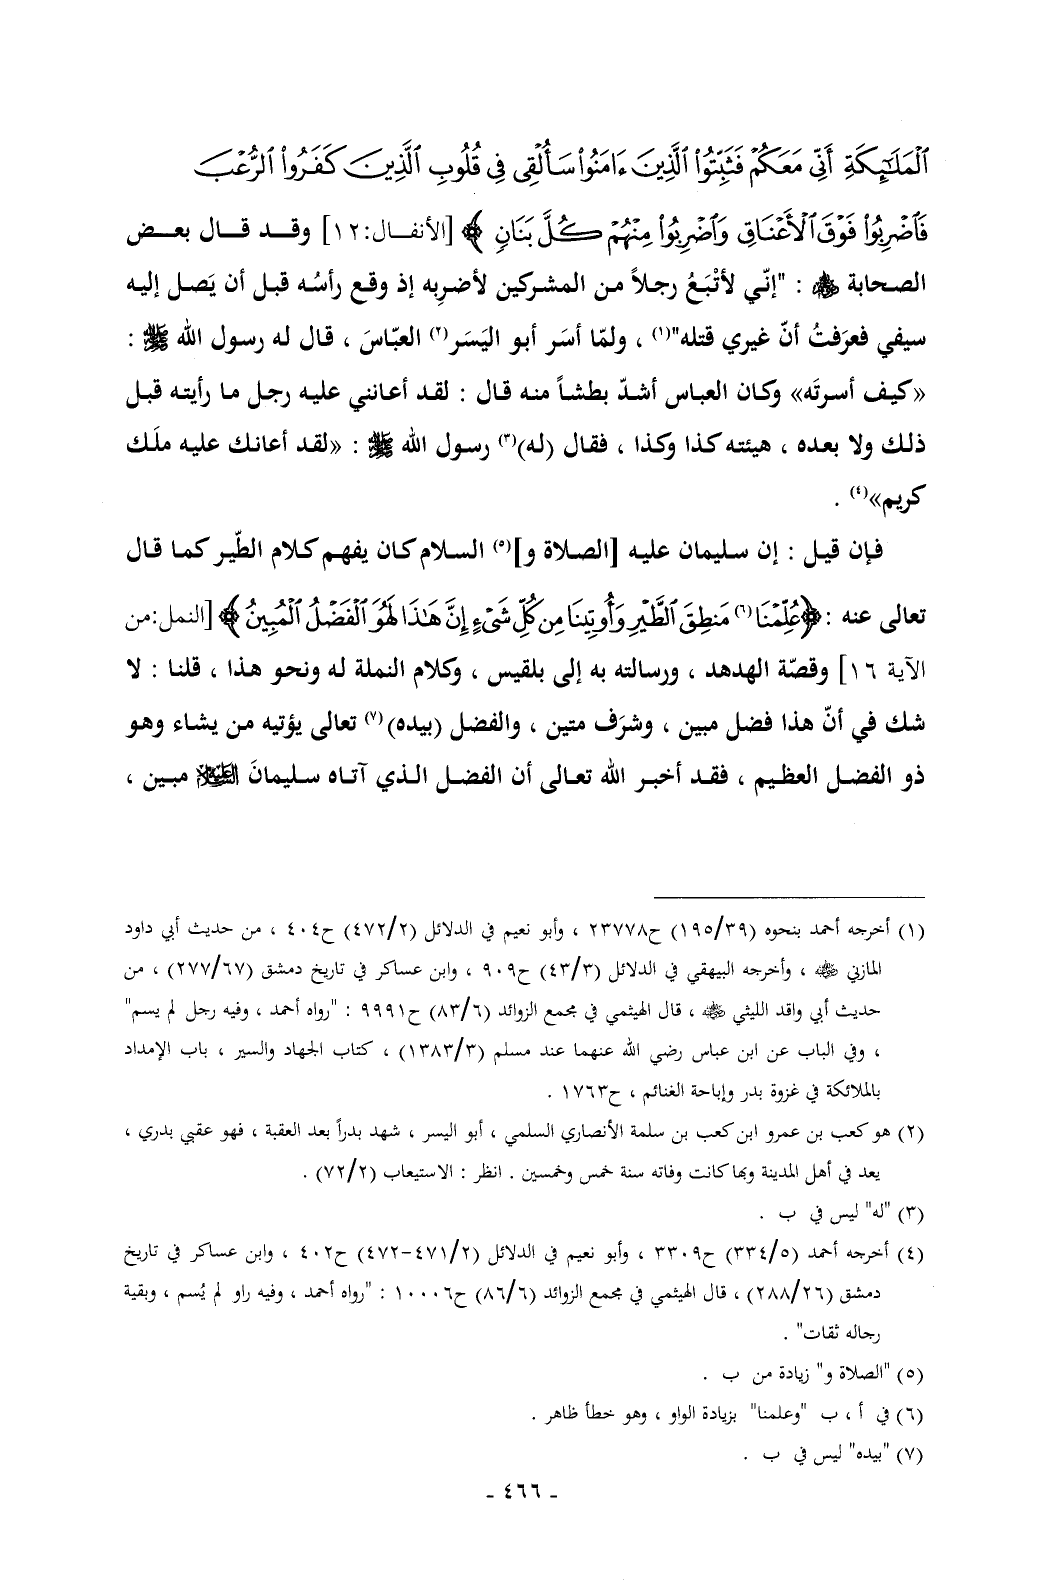 ٱلْمَلَـٰٓئِكَةِ أَنِّى مَعَكُمْ فَثَبِّتُوا۟ ٱلَّذِينَ ءَامَنُوا۟ سَأُلْقِى فِى قُلُوبِ ٱلَّذِينَ كَفَرُوا۟ ٱلرُّعْبَ
فَٱضْرِبُوا۟ فَوْقَ ٱلْأَعْنَاقِ وَٱضْرِبُوا۟ مِنْهُمْ كُلَّ بَنَانٍ ﴾ [الأنفـال:١٢] وقـد قـال بعـض
الصحابة ﷺ : "إنّي لأتْبَعُ رجلاً من المشركين لأضرِبه إذ وقع رأسُه قبل أن يَصل إليه
سيفي فعرَفتُ أنّ غيري قتله"(١) ، ولمّا أسَر أبو اليَسَر(٢) العبّاسَ ، قال له رسول الله ﷺ :
«كيف أسرتَه» وكان العباس أشدّ بطشاً منه قال : لقد أعانني عليه رجل ما رأيته قبل
ذلك ولا بعده ، هيئته كذا وكذا ، فقال (له)(٣) رسول الله ﷺ : «لقد أعانك عليه ملَك
كريم»(٤) .
فإن قيل : إن سليمان عليه [الصلاة و](٥) السلام كان يفهم كلام الطّير كما قال
تعالى عنه : ﴿عُلِّمْنَا(٦) مَنطِقَ ٱلطَّيْرِ وَأُوتِينَا مِن كُلِّ شَىْءٍ إِنَّ هَـٰذَا لَهُوَ ٱلْفَضْلُ ٱلْمُبِينُ﴾ [النمل:من
الآية ١٦] وقصّة الهدهد ، ورسالته به إلى بلقيس ، وكلام النملة له ونحو هذا ، قلنا : لا
شك في أنّ هذا فضل مبين ، وشرَف متين ، والفضل (بيده)(٧) تعالى يؤتيه من يشاء وهو
ذو الفضل العظيم ، فقد أخبر الله تعالى أن الفضل الذي آتاه سليمانَ العَلَيْهِ السَّلام مبين ،
(١) أخرجه أحمد بنحوه (١٩٥/٣٩) ح٢٣٧٧٨ ، وأبو نعيم في الدلائل (٤٧٢/٢) ح٤٠٤ ، من حديث أبي داود
المازني ﷺ ، وأخرجه البيهقي في الدلائل (٤٣/٣) ح٩٠٩ ، وابن عساكر في تاريخ دمشق (٢٧٧/٦٧) ، من
حديث أبي واقد الليثي ﷺ ، قال الهيثمي في مجمع الزوائد (٨٣/٦) ح٩٩٩١ : "رواه أحمد ، وفيه رجل لم يسم"
، وفي الباب عن ابن عباس رضي الله عنهما عند مسلم (١٣٨٣/٣) ، كتاب الجهاد والسير ، باب الإمداد
بالملائكة في غزوة بدر وإباحة الغنائم ، ح١٧٦٣ .
(٢) هو كعب بن عمرو ابن كعب بن سلمة الأنصاري السلمي ، أبو اليسر ، شهد بدراً بعد العقبة ، فهو عقبي بدري ،
يعد في أهل المدينة وبها كانت وفاته سنة خمس وخمسين . انظر : الاستيعاب (٧٢/٢) .
(٣) "له" ليس في ب .
(٤) أخرجه أحمد (٣٣٤/٥) ح٣٣٠٩ ، وأبو نعيم في الدلائل (٤٧١/٢-٤٧٢) ح٤٠٢ ، وابن عساكر في تاريخ
دمشق (٢٨٨/٢٦) ، قال الهيثمي في مجمع الزوائد (٨٦/٦) ح١٠٠٠٦ : "رواه أحمد ، وفيه راو لم يُسم ، وبقية
رجاله ثقات" .
(٥) "الصلاة و" زيادة من ب .
(٦) في أ ، ب "وعلمنا" بزيادة الواو ، وهو خطأ ظاهر .
(٧) "بيده" ليس في ب .
- ٤٦٦ -